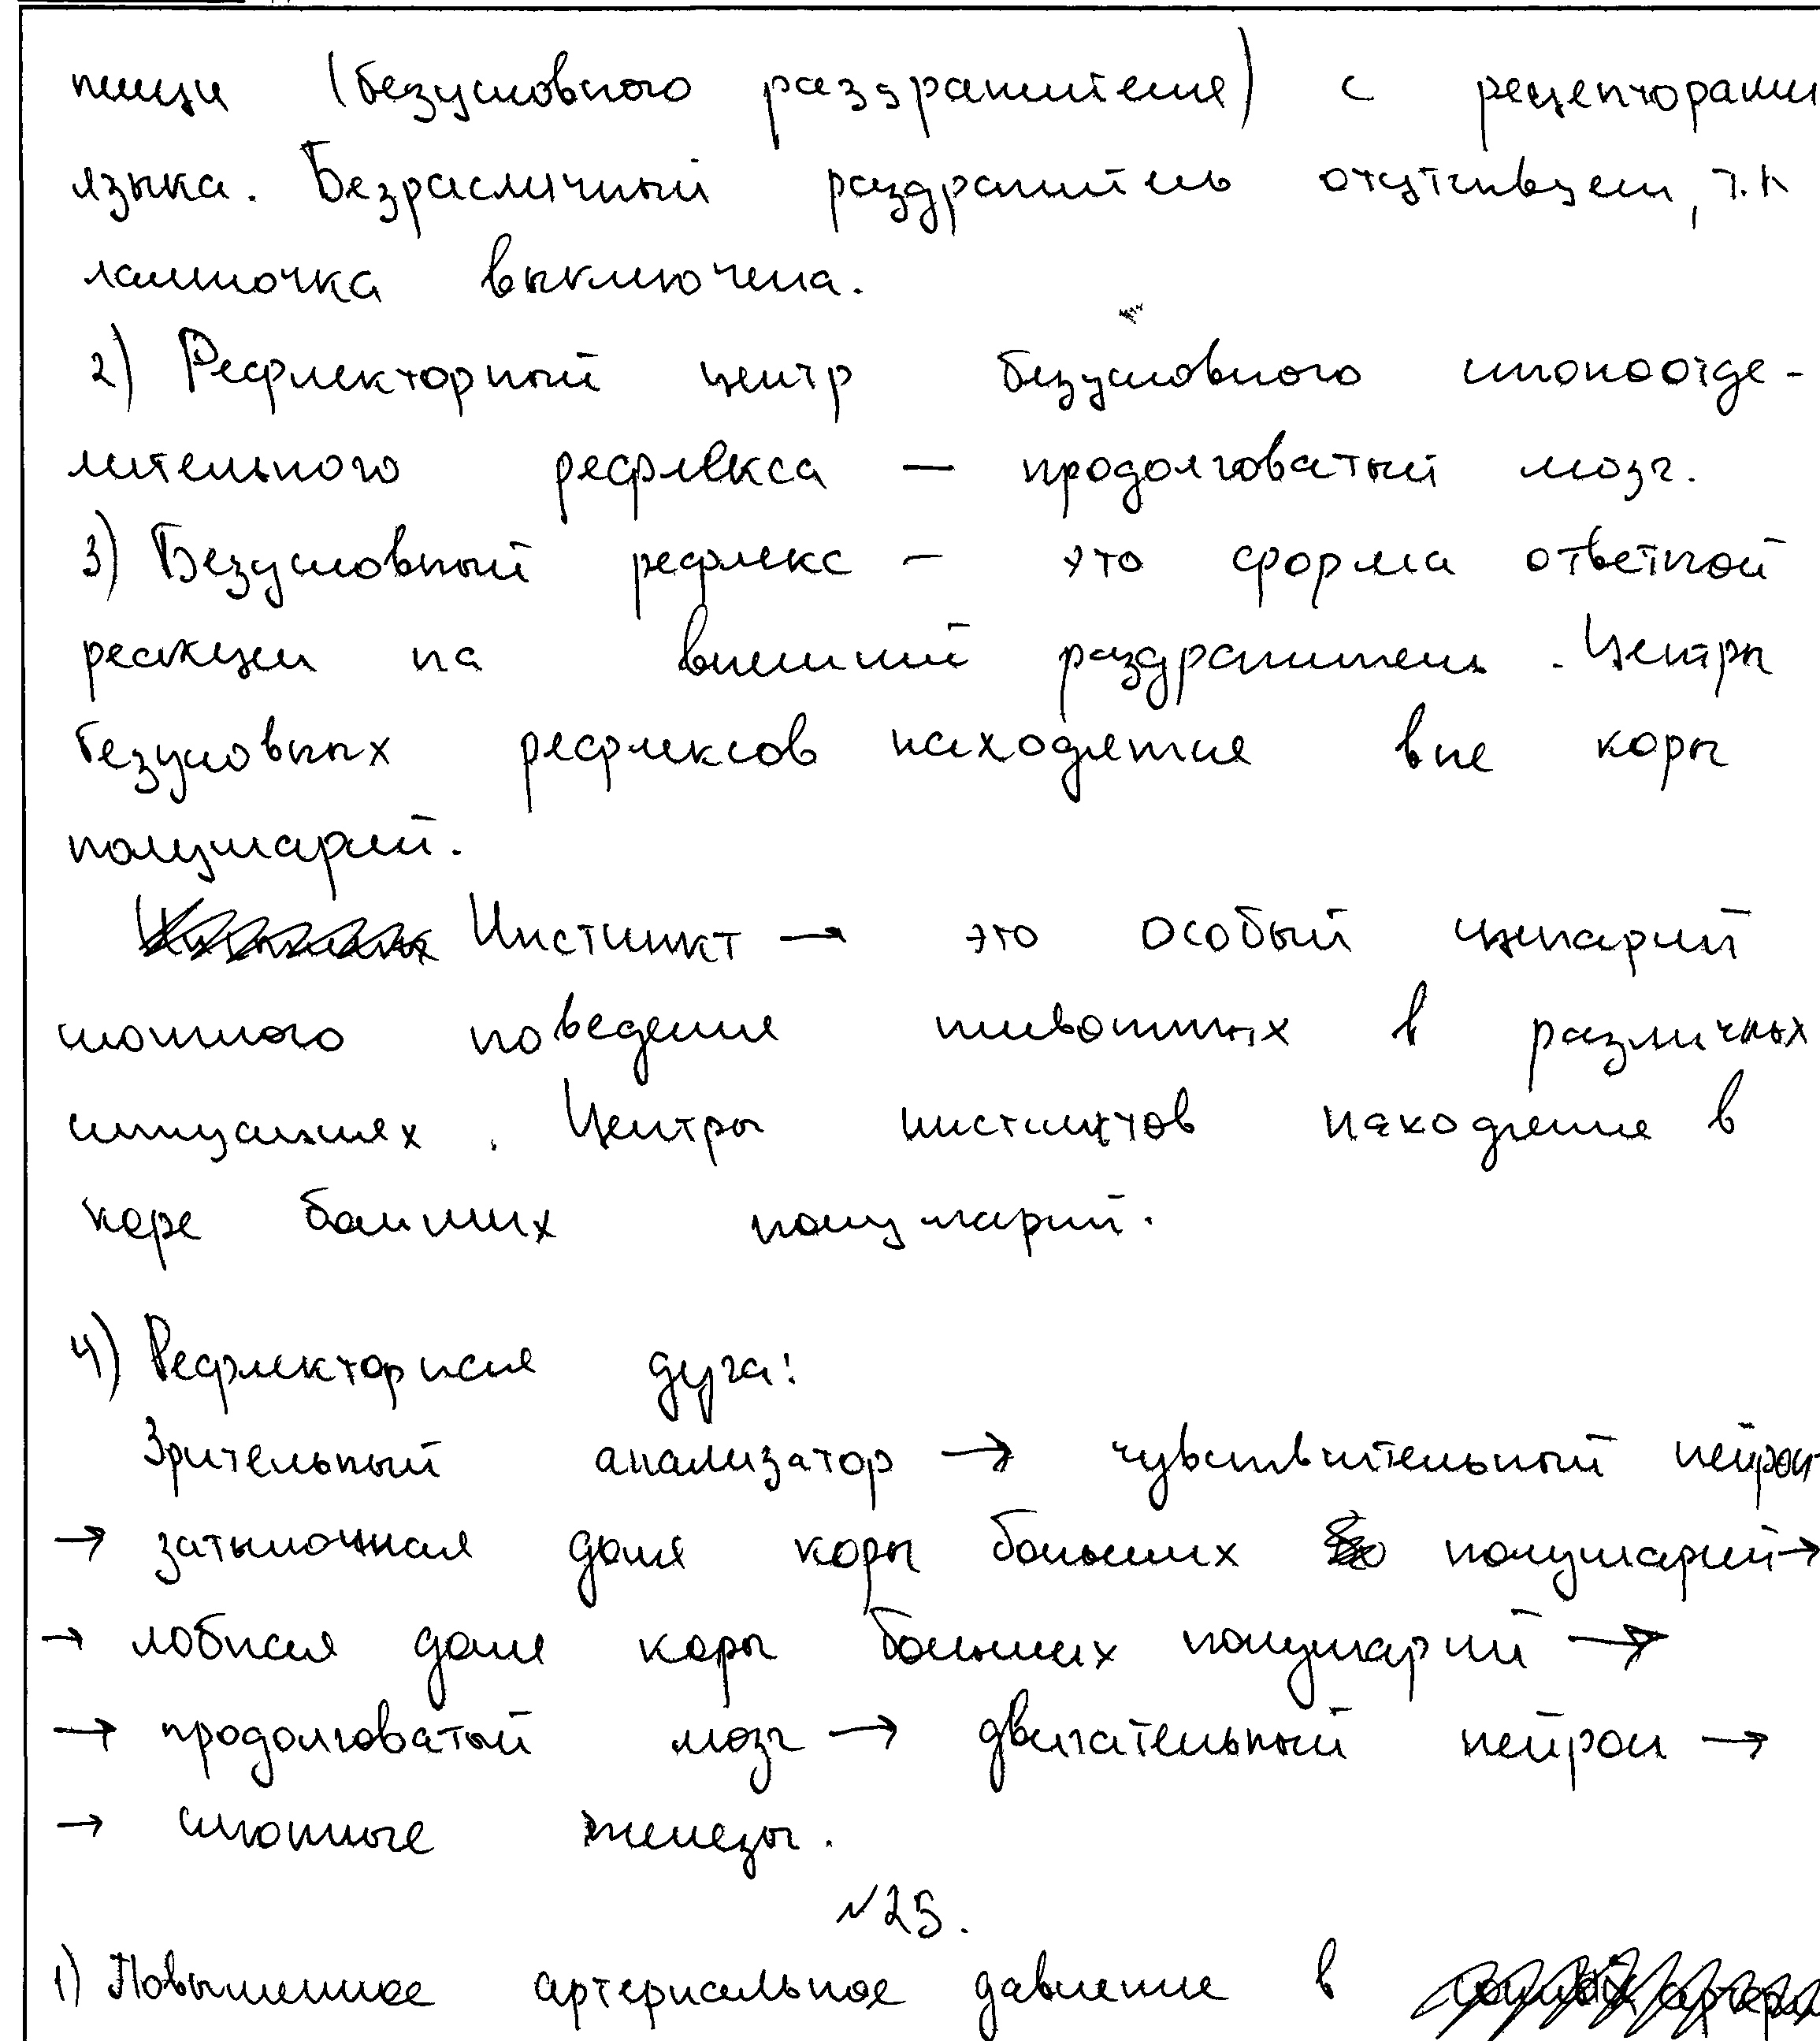 пищи (безусловного раздражителя) с рецепторами
языка. Безразличный раздражитель отсутствует, т.к
лампочка выключена.
2) Рефлекторный центр безусловного слюноотде-
лительного рефлекса — продолговатый мозг.
3) Безусловный рефлекс — это форма ответной
реакции на внешний раздражитель. Центры
безусловных рефлексов находятся вне коры
полушарий.
Инстинкт — это особый сценарий
сложного поведения животных в различных
ситуациях. Центры инстинктов находятся в
коре больших полушарий.
4) Рефлекторная дуга:
Зрительный анализатор → чувствительный нейрон
→ затылочная доля коры больших полушарий →
→ лобная доля коры больших полушарий →
→ продолговатый мозг → двигательный нейрон →
→ слюнные железы.
№25.
1) Повышенное артериальное давление в